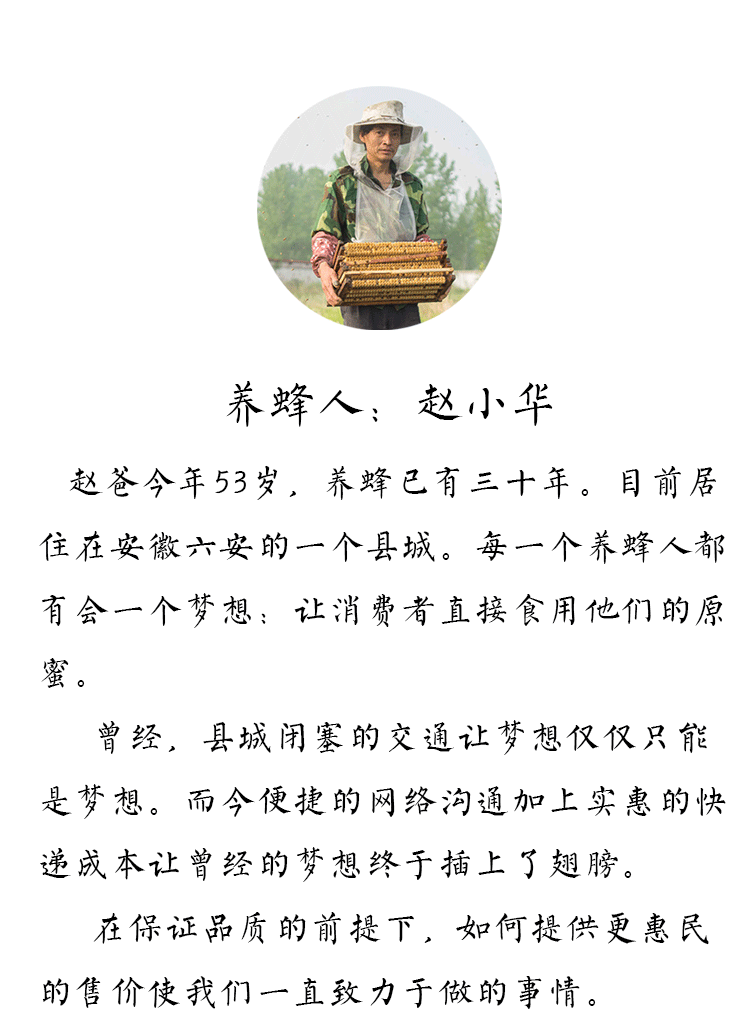 养蜂人：赵小华
赵爸今年53岁，养蜂已有三十年。目前居
住在安徽六安的一个县城。每一个养蜂人都
有会一个梦想：让消费者直接食用他们的原
蜜。
曾经，县城闭塞的交通让梦想仅仅只能
是梦想。而今便捷的网络沟通加上实惠的快
递成本让曾经的梦想终于插上了翅膀。
在保证品质的前提下，如何提供更惠民
的售价使我们一直致力于做的事情。